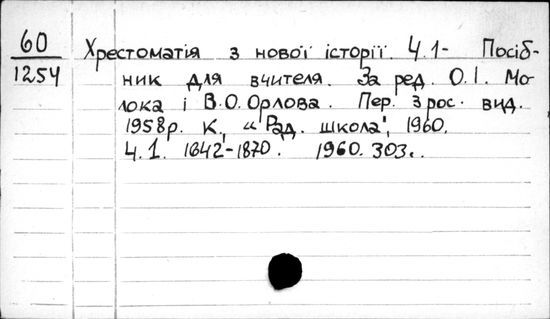 60
1254
Хрестоматія з нової історії. Ч.1- Посіб-
ник для вчителя. За ред. О.І. Мо-
лока і В.О.Орлова. Пер. з рос. вид.
1958р. К., "Рад. школа", 1960.
Ч.1. 1642-1870. 1960. 303с.